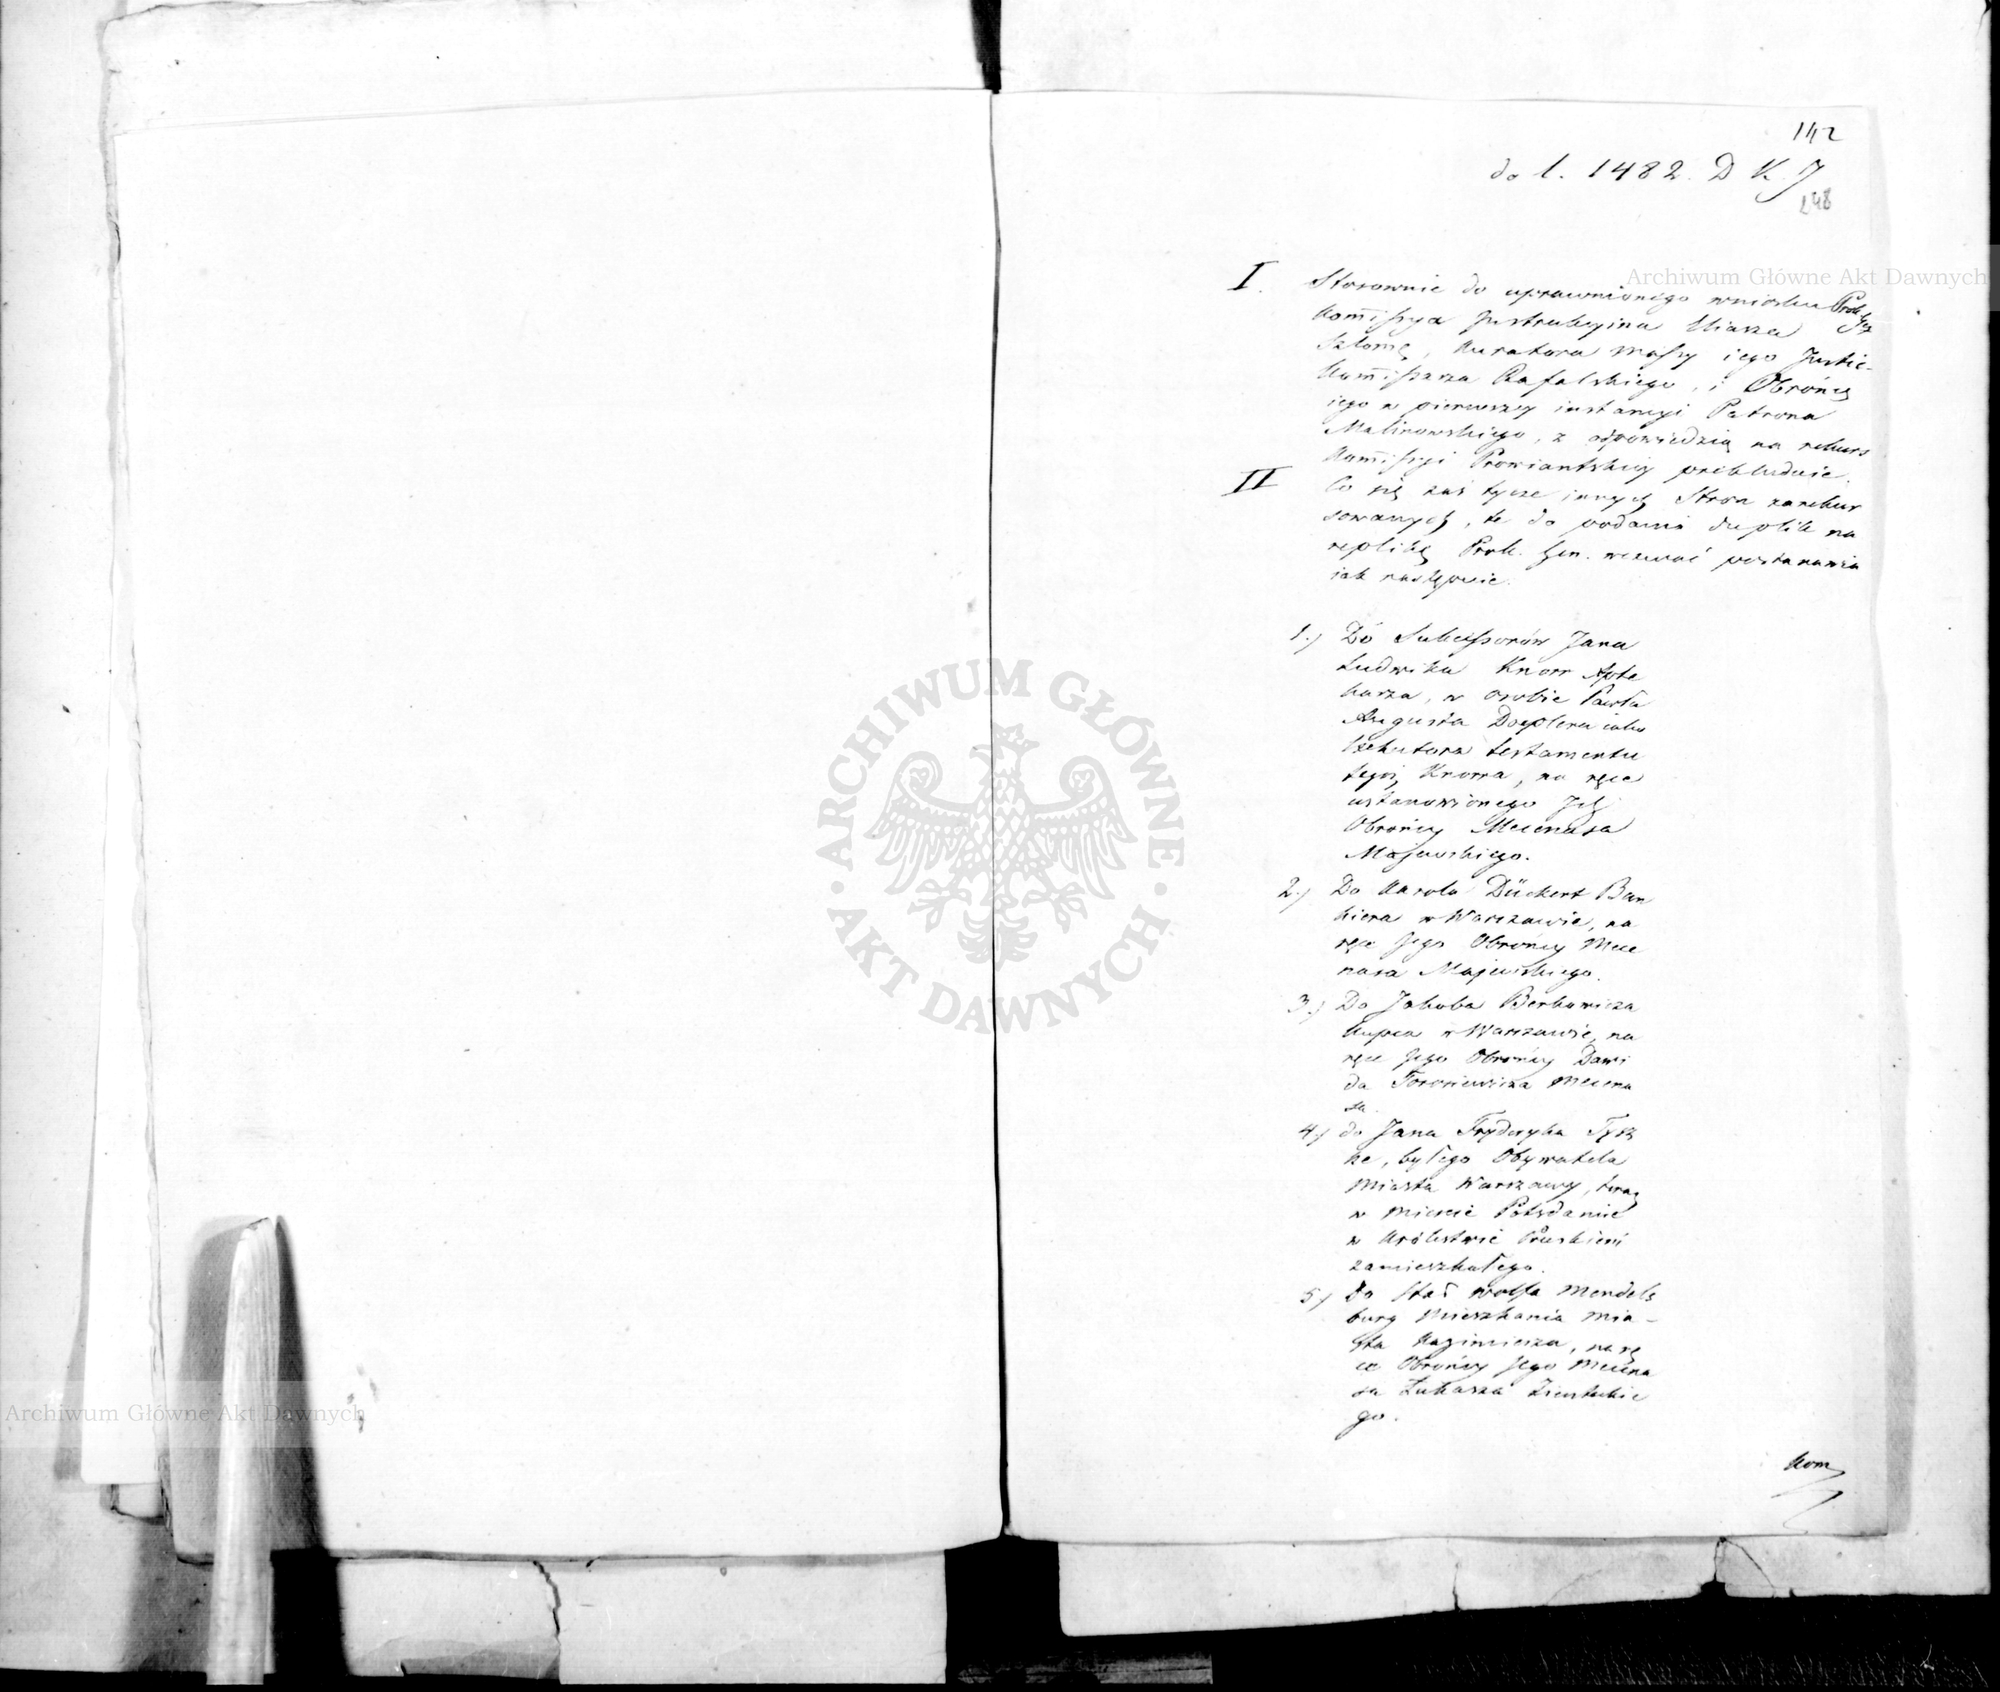 142
do l. 1482. D K. J
248
I. Stosownie do uprawnionego wniosku Prok. Gen
Kommissya Instrukcyina Eliasza
Szlomę, Kuratora Massy iego Justic-
Kommissarza Rafalskiego, i Obrońcę
iego w pierwszey instancyi Patrona
Malinowskiego, z odpowiedzią na rekurs
Kommissyi Prowiantskiey prekluduie.
II Co się zaś tycze innych Stron zarekur
sowanych, te do podania duplik na
replikę Prok. Gen. wezwać postanawia
iak następuie.
1.) Do Sukcessorów Jana
Ludwika Knorr Apte
karza, w osobie Pawła
Augusta Doeplera iako
Exekutora testamentu
tegoż Knorra, na ręce
ustanowionego Ich
Obrońcy Mecenasa
Majewskiego.
2.) Do Karola Dückert Ban
kiera w Warszawie, na
ręce Jego Obrońcy Mece
nasa Majewskiego.
3.) Do Jakuba Berkowicza
Kupca w Warszawie, na
ręce Jego Obrońcy Dawi
da Torosiewicza Mecena
sa.
4.) do Jana Fryderyka
ke, byłego Obywatela
Miasta Warszawy, teraz
w Mieście Potsdamie
w Królestwie Pruskiem
zamieszkałego.
5.) Do Wolfa Mendels
burg Mieszkańca Mia-
sta Kazimierza, na rę
ce Obrońcy Jego Mecena
sa Łukasza
go.
Kom
ARCHIWUM GŁÓWNE
AKT DAWNYCH
Archiwum Główne Akt Dawnych
Archiwum Główne Akt Dawnych